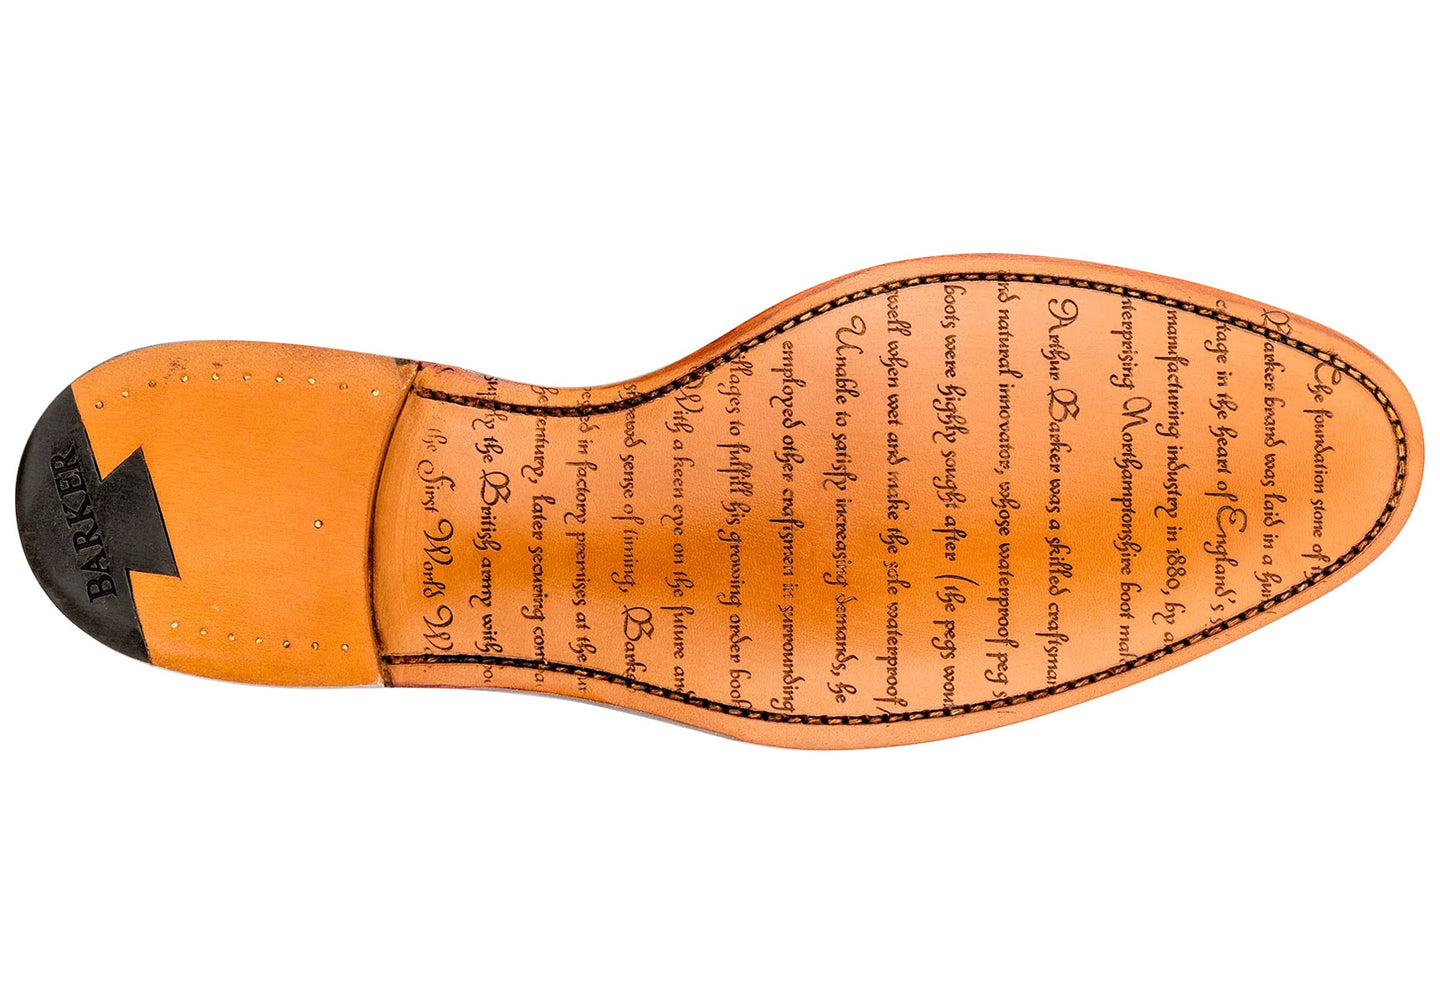 The foundation stone of
Barker brand was laid in a
cottage in the heart of England's
manufacturing industry in 1880, by
Northamptonshire boot
Arthur Barker was a skilled
natural innovator, whose waterproof peg
boots were highly sought after (the pegs
well when wet and make the sole waterproof
Unable to satisfy increasing demands, he
employed other craftsmen in surrounding
to fulfill his growing order
With a keen eye on the future
sense of timing,
in factory premises at the
later securing
the British army with
the First World
BARKER